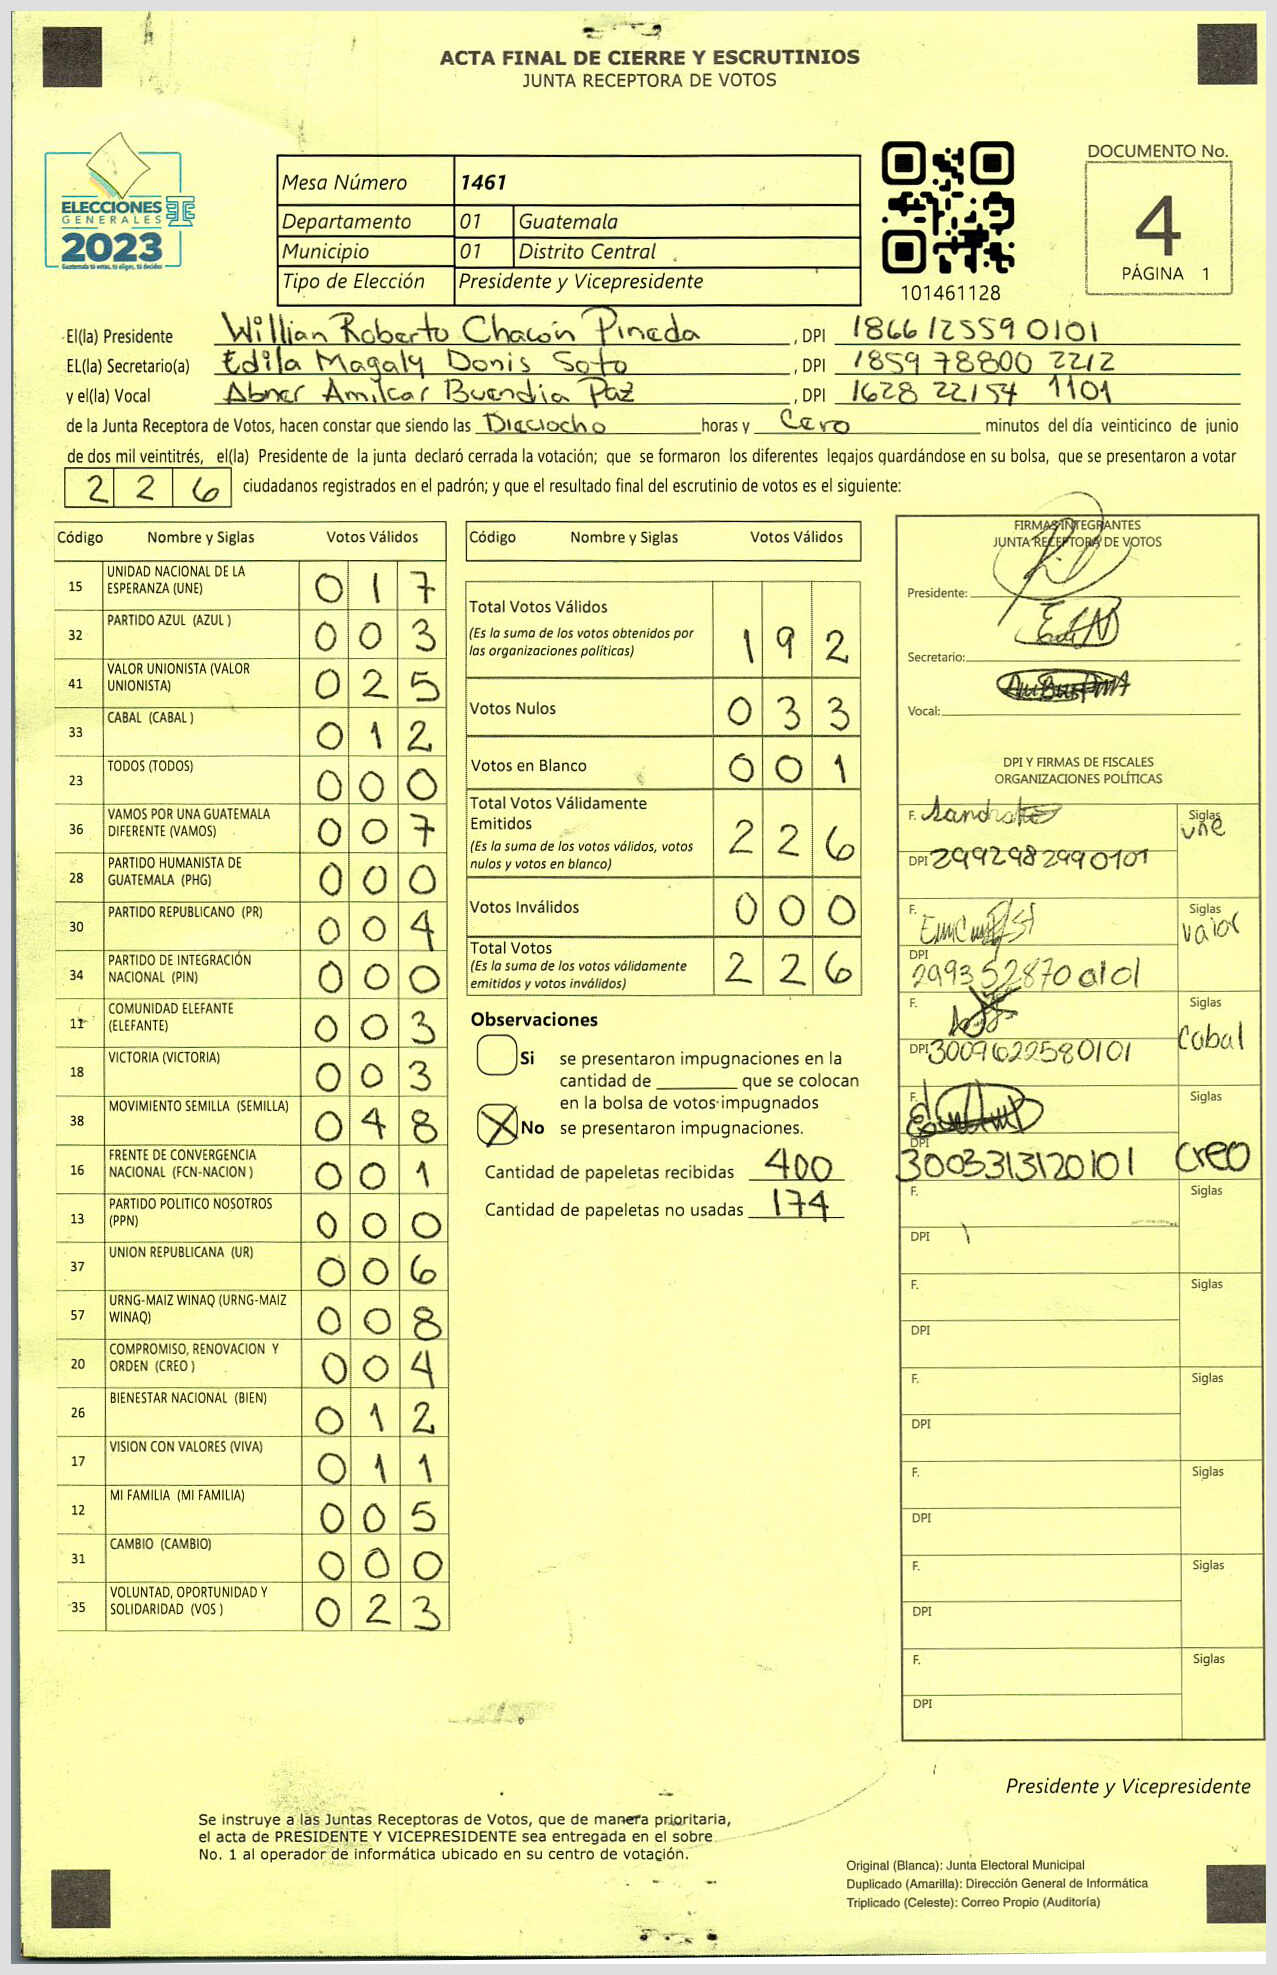 ACTA FINAL DE CIERRE Y ESCRUTINIOS
JUNTA RECEPTORA DE VOTOS
ELECCIONES
GENERALES
2023
Guatemala tú votas, tú eliges, tú decides
Mesa Número 1461
Departamento 01 Guatemala
Municipio 01 Distrito Central
Tipo de Elección Presidente y Vicepresidente
101461128
DOCUMENTO No.
4
PÁGINA 1
El(la) Presidente Willian Roberto Chacón Pineda, DPI 1866125590101
EL(la) Secretario(a) Edila Magaly Donis Soto, DPI 1859 78800 2212
y el(la) Vocal Abner Amilcar Buendia Paz, DPI 1628 22154 1101
de la Junta Receptora de Votos, hacen constar que siendo las Dieciocho horas y Cero minutos del día veinticinco de junio
de dos mil veintitrés, el(la) Presidente de la junta declaró cerrada la votación; que se formaron los diferentes legajos guardándose en su bolsa, que se presentaron a votar
226 ciudadanos registrados en el padrón; y que el resultado final del escrutinio de votos es el siguiente:
Código Nombre y Siglas Votos Válidos
15 UNIDAD NACIONAL DE LA ESPERANZA (UNE) 017
32 PARTIDO AZUL (AZUL ) 003
41 VALOR UNIONISTA (VALOR UNIONISTA) 025
33 CABAL (CABAL ) 012
23 TODOS (TODOS) 000
36 VAMOS POR UNA GUATEMALA DIFERENTE (VAMOS) 007
28 PARTIDO HUMANISTA DE GUATEMALA (PHG) 000
30 PARTIDO REPUBLICANO (PR) 004
34 PARTIDO DE INTEGRACIÓN NACIONAL (PIN) 000
11 COMUNIDAD ELEFANTE (ELEFANTE) 003
18 VICTORIA (VICTORIA) 003
38 MOVIMIENTO SEMILLA (SEMILLA) 048
16 FRENTE DE CONVERGENCIA NACIONAL (FCN-NACION ) 001
13 PARTIDO POLITICO NOSOTROS (PPN) 000
37 UNION REPUBLICANA (UR) 006
57 URNG-MAIZ WINAQ (URNG-MAIZ WINAQ) 008
20 COMPROMISO, RENOVACION Y ORDEN (CREO ) 004
26 BIENESTAR NACIONAL (BIEN) 012
17 VISION CON VALORES (VIVA) 011
12 MI FAMILIA (MI FAMILIA) 005
31 CAMBIO (CAMBIO) 000
35 VOLUNTAD, OPORTUNIDAD Y SOLIDARIDAD (VOS ) 023
Código Nombre y Siglas Votos Válidos
Total Votos Válidos
(Es la suma de los votos obtenidos por
las organizaciones políticas) 192
Votos Nulos 033
Votos en Blanco 001
Total Votos Válidamente
Emitidos
(Es la suma de los votos válidos, votos
nulos y votos en blanco) 226
Votos Inválidos 000
Total Votos
(Es la suma de los votos válidamente
emitidos y votos inválidos) 226
Observaciones
Si se presentaron impugnaciones en la
cantidad de ________ que se colocan
en la bolsa de votos impugnados
No se presentaron impugnaciones.
Cantidad de papeletas recibidas 400
Cantidad de papeletas no usadas 174
FIRMAS INTEGRANTES
JUNTA RECEPTORA DE VOTOS
Presidente:
Secretario:
Vocal:
DPI Y FIRMAS DE FISCALES
ORGANIZACIONES POLÍTICAS
F. Siglas une
DPI 2992982990101
F. Siglas valor
DPI 299352870 0101
F. Siglas Cabal
DPI 3009622580101
F. Siglas
DPI 3003313120101 Creo
F. Siglas
DPI
F. Siglas
DPI
F. Siglas
DPI
F. Siglas
DPI
F. Siglas
DPI
F. Siglas
DPI
Presidente y Vicepresidente
Se instruye a las Juntas Receptoras de Votos, que de manera prioritaria,
el acta de PRESIDENTE Y VICEPRESIDENTE sea entregada en el sobre
No. 1 al operador de informática ubicado en su centro de votación.
Original (Blanca): Junta Electoral Municipal
Duplicado (Amarilla): Dirección General de Informática
Triplicado (Celeste): Correo Propio (Auditoría)